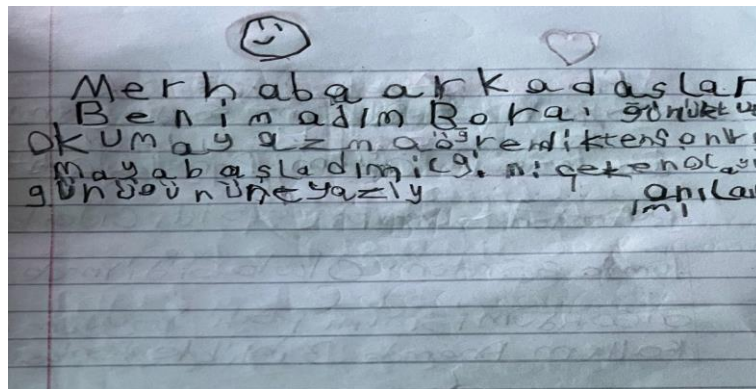 Merhaba arkadaşlar
Benim adım Bora. günlük tu
Okumayazma öğrendikten sonr
maya başladım ilgi ni çeken olay
günü gününe yazıy anıla
ımı